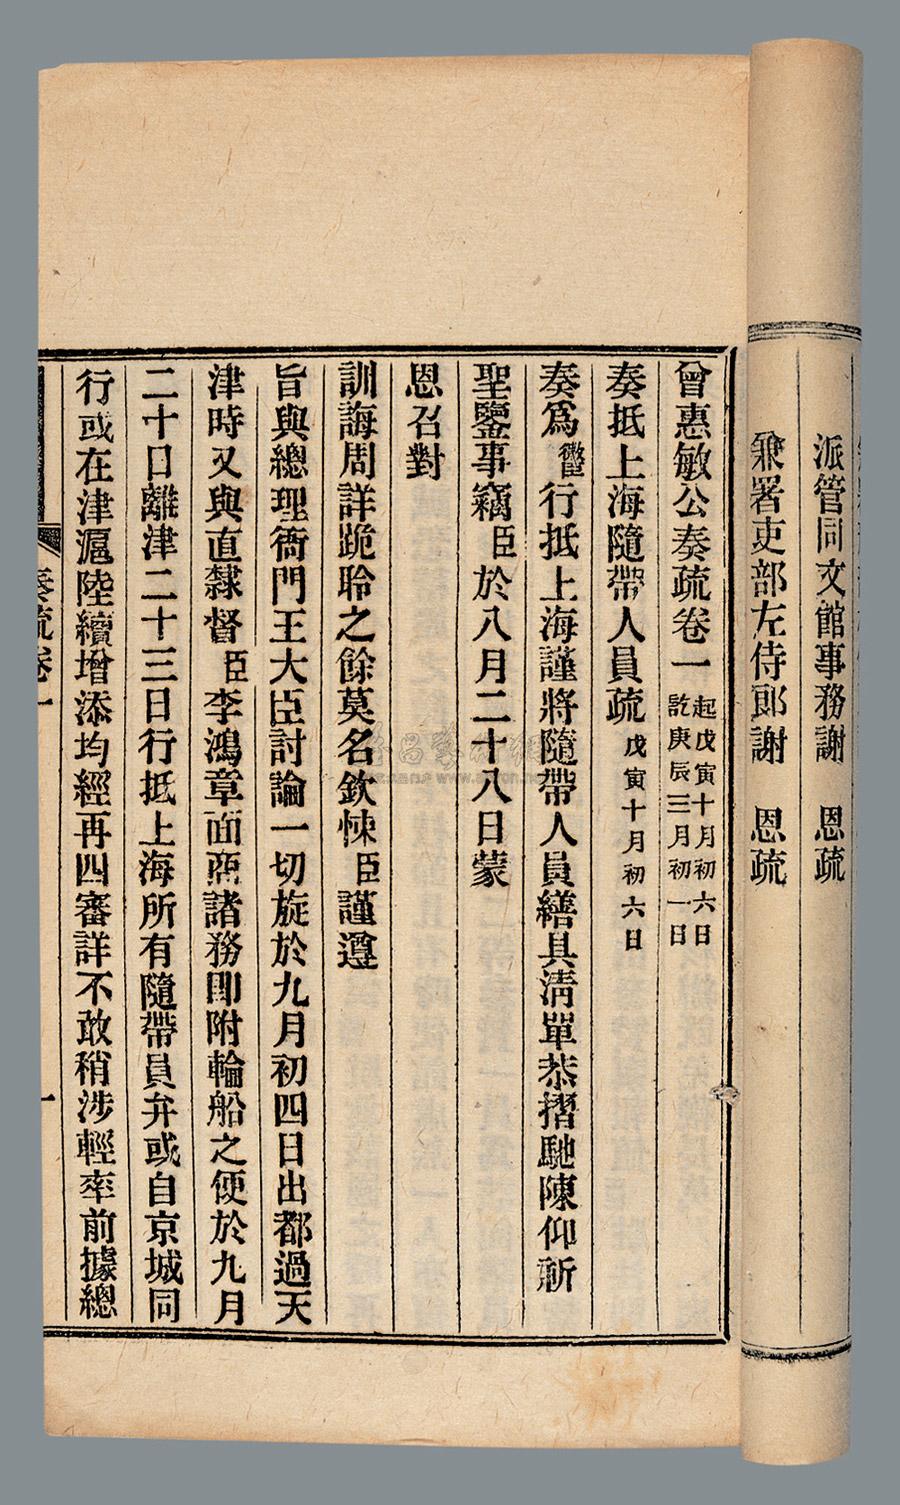 派管同文館事務謝　恩疏
兼署吏部左侍郎謝　恩疏
曾惠敏公奏疏卷一　起戊寅十月初六日
訖庚辰三月初一日
奏抵上海隨帶人員疏　戊寅十月初六日
奏爲微臣行抵上海謹將隨帶人員繕具清單恭摺馳陳仰祈
聖鑒事竊臣於八月二十八日蒙
恩召對
訓誨周詳跪聆之餘莫名欽悚臣謹遵
旨與總理衙門王大臣討論一切旋於九月初四日出都過天
津時又與直隸督臣李鴻章面商諸務即附輪船之便於九月
二十日離津二十三日行抵上海所有隨帶員弁或自京城同
行或在津滬陸續增添均經再四審詳不敢稍涉輕率前據總
奏疏卷一
一